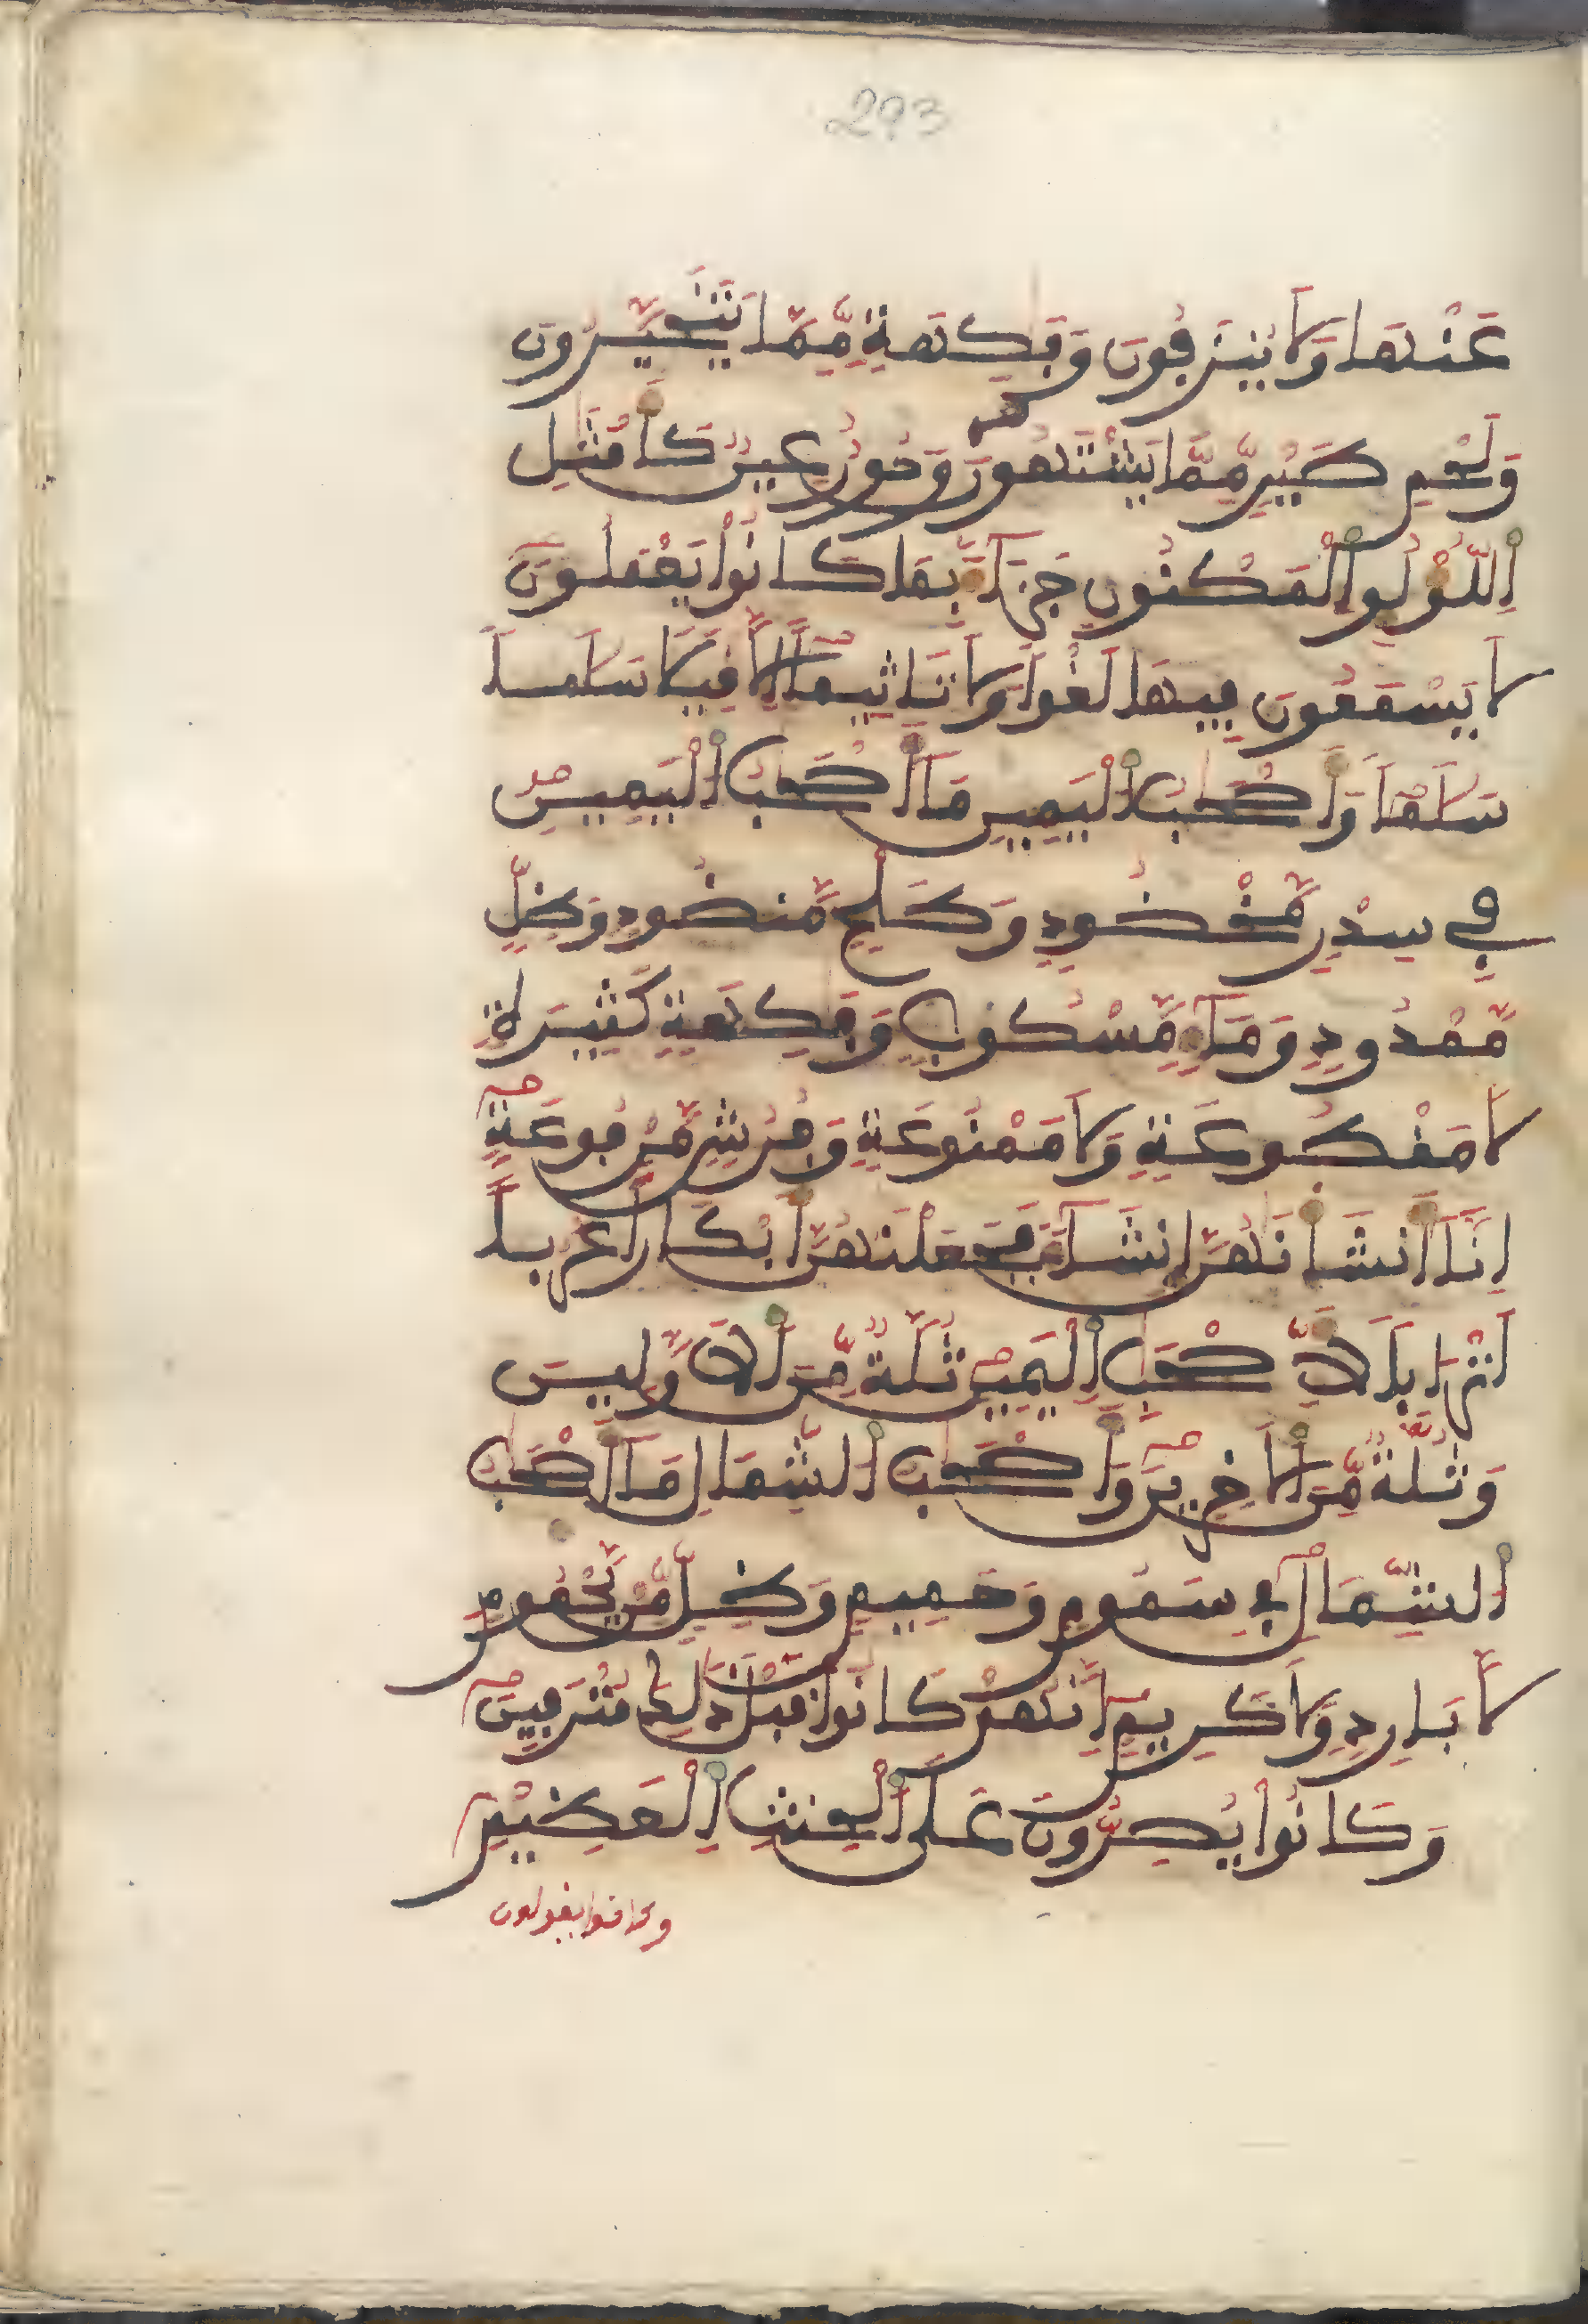 293
عَنْهَا وَلَا يُنزَفُونَ وَفَٰكِهَةٖ مِّمَّا يَتَخَيَّرُونَ
وَلَحْمِ طَيْرٖ مِّمَّا يَشْتَهُونَ وَحُورٌ عِينٞ كَأَمْثَٰلِ
اِ۬للُّؤْلُوِٕ اِ۬لْمَكْنُونِ جَزَآءَۢ بِمَا كَانُوا۟ يَعْمَلُونَ
لَا يَسْمَعُونَ فِيهَا لَغْواٗ وَلَا تَاثِيماً اِلَّا قِيلاٗ سَلَٰماٗ
سَلَٰماٗ وَأَصْحَٰبُ اُ۬لْيَمِينِ مَآ أَصْحَٰبُ اُ۬لْيَمِينِ
فِے سِدْرٖ مَّخْضُودٖ وَطَلْحٖ مَّنضُودٖ وَظِلّٖ
مَّمْدُودٖ وَمَآءٖ مَّسْكُوبٖ وَفَٰكِهَةٖ كَثِيرَةٖ
لَّا مَقْطُوعَةٖ وَلَا مَمْنُوعَةٖ وَفُرُشٖ مَّرْفُوعَةٍ
اِنَّآ أَنشَأْنَٰهُنَّ إِنشَآءٗ فَجَعَلْنَٰهُنَّ أَبْكَاراً عُرُباً
اَتْرَاباٗ لِّأَصْحَٰبِ اِ۬لْيَمِينِ ثُلَّةٞ مِّنَ اَ۬لَاوَّلِينَ
وَثُلَّةٞ مِّنَ اَ۬لَاخِرِينَ وَأَصْحَٰبُ اُ۬لشِّمَالِ مَآ أَصْحَٰبُ
اُ۬لشِّمَالِ فِے سَمُومٖ وَحَمِيمٖ وَظِلّٖ مِّنْ يَّحْمُومٖ
لَّا بَارِدٖ وَلَا كَرِيمٍ اِنَّهُمْ كَانُوا۟ قَبْلَ ذَٰلِكَ مُتْرَفِينَ
وَكَانُوا۟ يُصِرُّونَ عَلَى اَ۬لْحِنثِ اِ۬لْعَظِيمِ
وكانوا يقولون